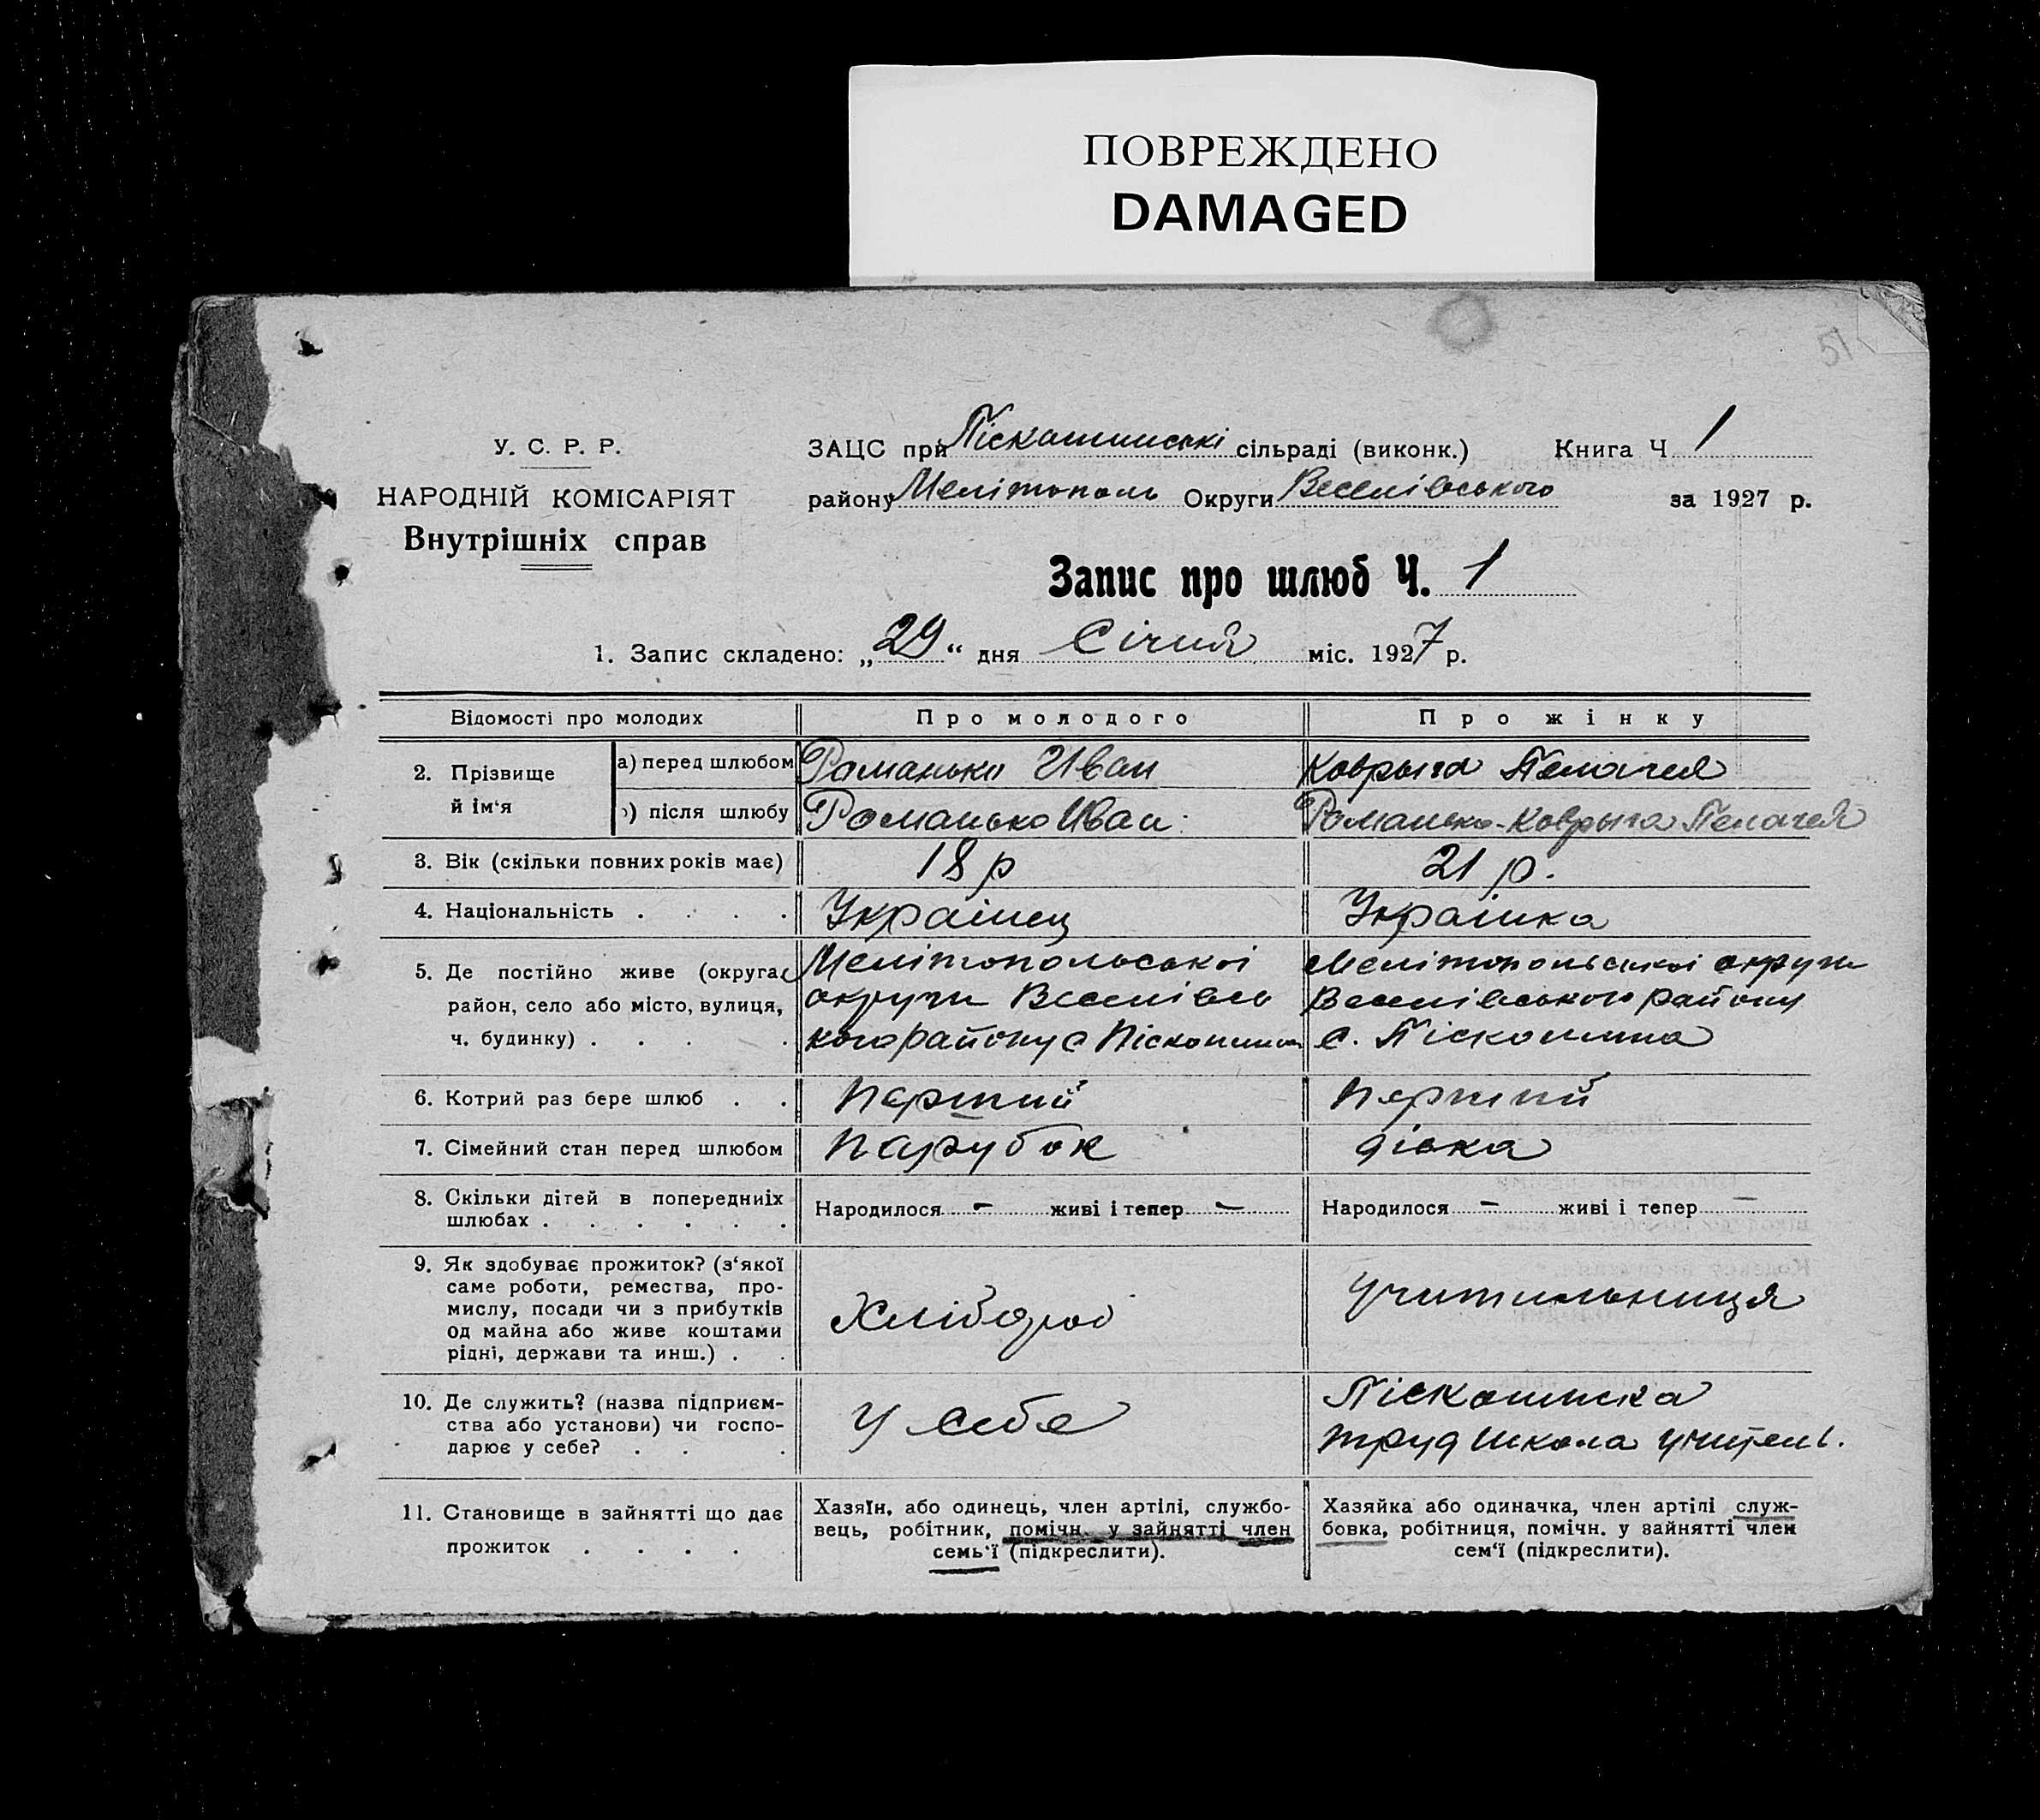 ПОВРЕЖДЕНО
DAMAGED
51
У. С. Р. Р.
НАРОДНІЙ КОМІСАРІЯТ
Внутрішніх справ
ЗАЦС при Піскошинські сільраді (виконк.) Книга Ч 1
району Мелітополь Округи Веселівського за 1927 р.
Запис про шлюб Ч. 1
1. Запис складено: „29“ дня Січня міс. 1927 р.
Відомості про молодих Про молодого Про жінку
2. Прізвище й ім‘я
а) перед шлюбом Романько Иван Коврыга Пелагея
) після шлюбу Романько Иван Романько-Коврыга Пелагея
3. Вік (скільки повних років має) 18 р 21 р.
4. Національність . . . . Украінец Украінка
5. Де постійно живе (округа, район, село або місто, вулиця, ч. будинку) . . . .
Мелітопольськоі
округи Веселівсь
кого району с Піскошина
Мелітопольськоі округи
Веселівського району
с. Піскошина
6. Котрий раз бере шлюб . . Перший Перший
7. Сімейний стан перед шлюбом Парубок дівка
8. Скільки дітей в попередниіх
шлюбах . . . . . .
Народилося – живі і тепер – Народилося – живі і тепер –
9. Як здобуває прожиток? (з‘якої
саме роботи, ремества, про-
мислу, посади чи з прибутків
од майна або живе коштами
рідні, держави та инш.) . .
Хлібороб
Учительниця
10. Де служить? (назва підприєм-
ства або установи) чи госпо-
дарює у себе? . . .
У себе
Піскошинска
труд школа учител.
11. Становище в зайнятті що дає
прожиток . . . .
Хазяїн, або одинець, член артілі, службо-
вець, робітник, помічн. у зайнятті член
семь‘ї (підкреслити).
Хазяйка або одиначка, член артілі служ-
бовка, робітниця, помічн. у зайнятті член
сем‘ї (підкреслити).